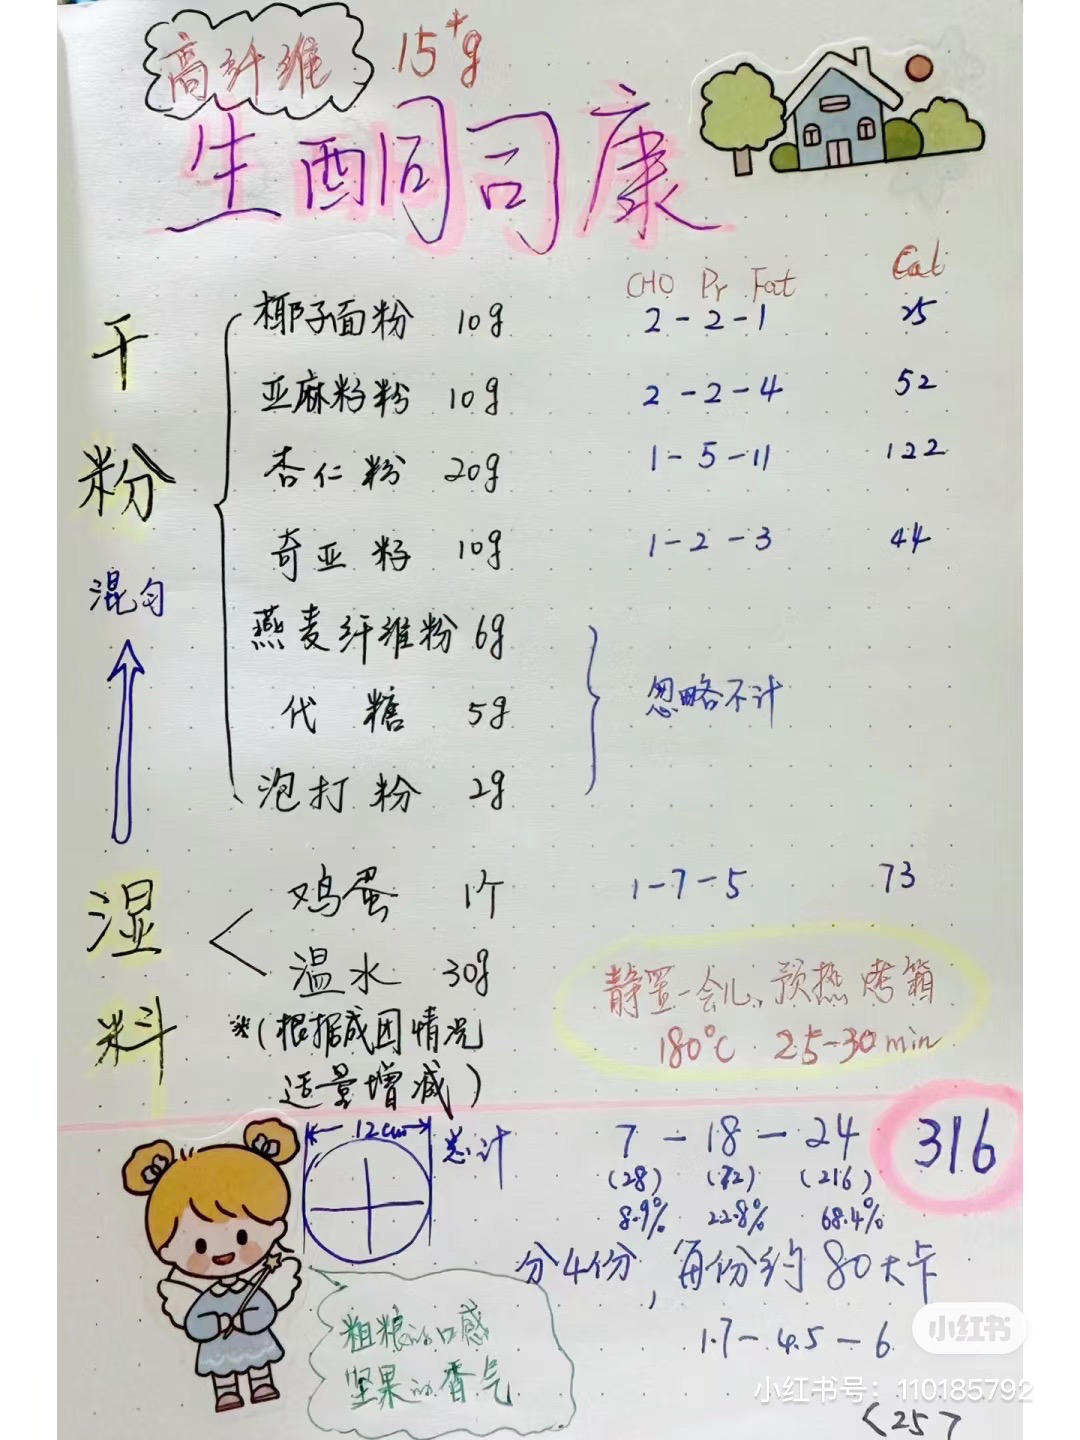 高纤维 15⁺g
生酮司康
CHO Pr Fat Cal
干粉
椰子面粉 10g 2-2-1 25
亚麻籽粉 10g 2-2-4 52
杏仁粉 20g 1-5-11 122
奇亚籽 10g 1-2-3 44
混匀
燕麦纤维粉 6g
代糖 5g
忽略不计
泡打粉 2g
湿料
鸡蛋 1个 1-7-5 73
温水 30g
※(根据成团情况
适量增减)
静置一会儿,预热烤箱
180℃ 25-30min
12cm
总计 7-18-24 316
(28) (72) (216)
8.9% 22.8% 68.4%
分4份,每份约80大卡
1.7-4.5-6
粗粮的口感
坚果的香气
小红书
小红书号:110185792
<25>